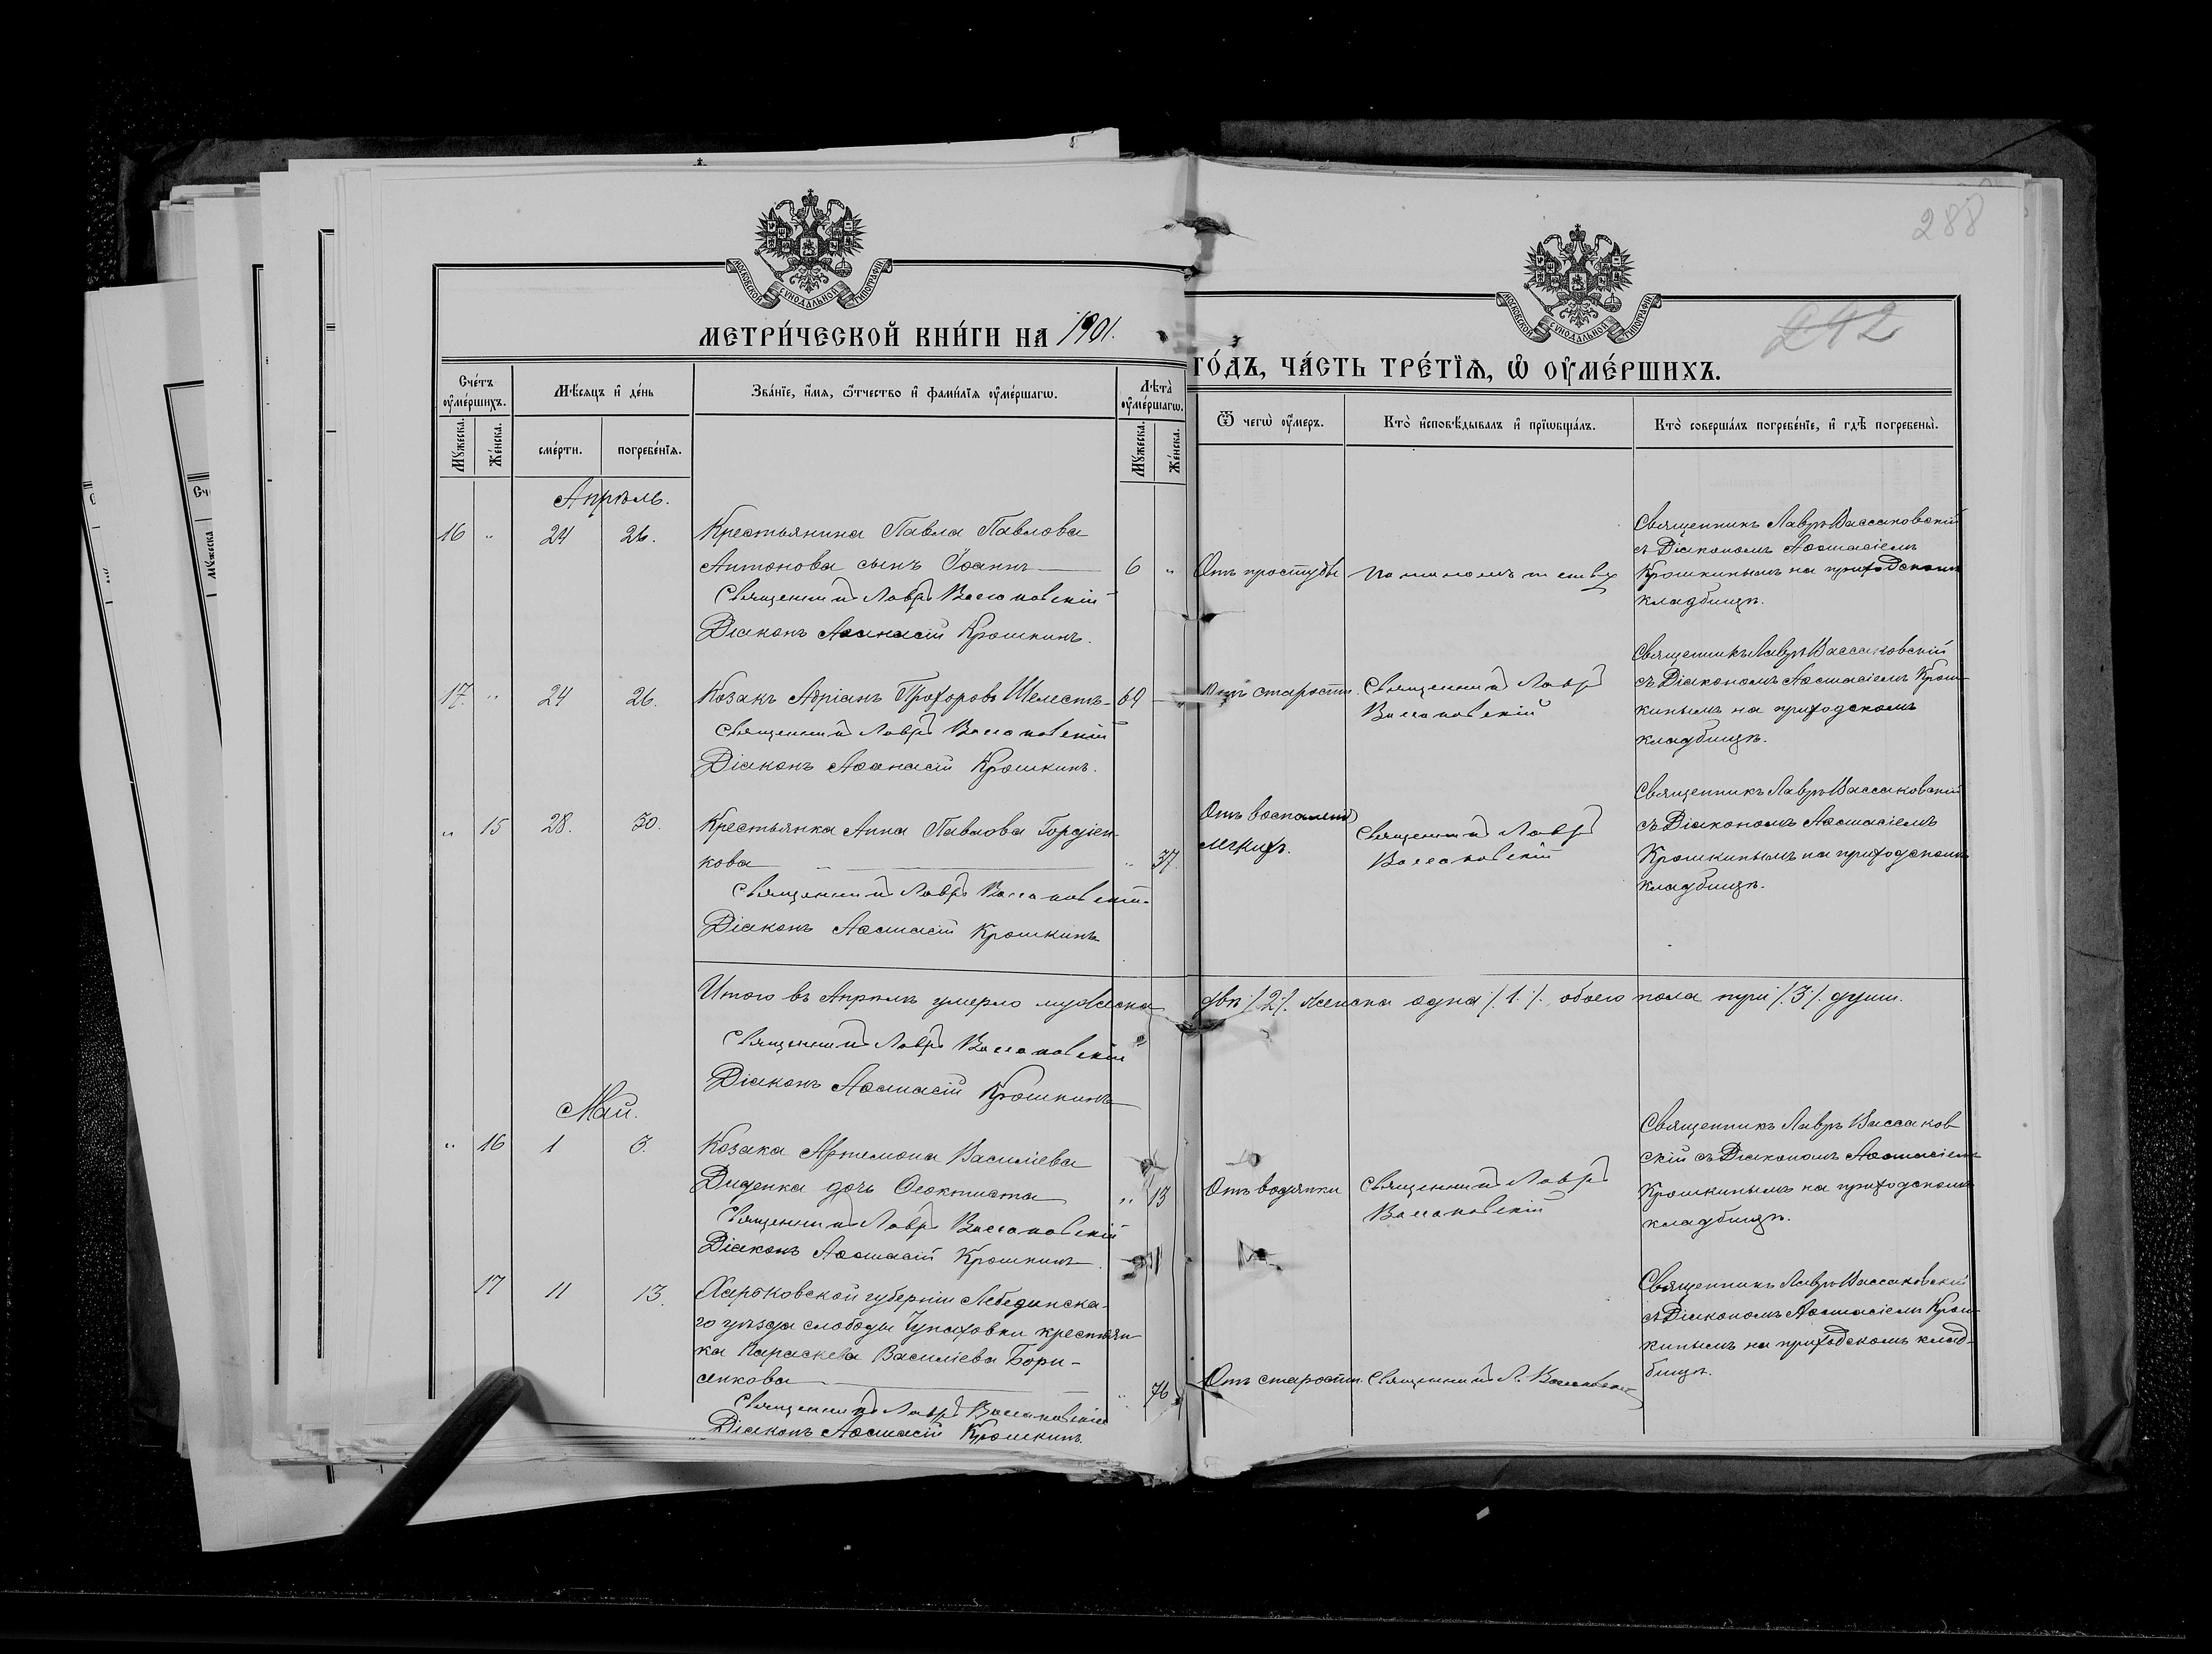 288
242
МОСКОВСКОЙ СѴНОДАЛЬНОЙ ТИПОГРАФІИ
МОСКОВСКОЙ СѴНОДАЛЬНОЙ ТИПОГРАФІИ
МЕТРИ́ЧЕСКОЙ КНИ́ГИ НА 1901.
ГО́ДЪ, ЧА́СТЬ ТРЕ́ТІѦ, Ѡ҆ ОУ҆МЕ́РШИХЪ.
Сче́тъ оу҆ме́ршихъ.
Мꙋ́жеска. Же́нска.
Мѣ́сяцъ и҆ де́нь
сме́рти. погребе́нїѧ.
Зва́нїе, и҆́мѧ, ѻ҆́тчество и҆ фами́лїѧ оу҆ме́ршагѡ.
Лѣ́та оу҆ме́ршагѡ.
Мꙋ́жеска. Же́нска.
Ѿ чегѡ̀ оу҆́меръ.
Кто̀ и҆сповѣ́дывалъ и҆ прїѡбща́лъ.
Кто̀ соверша́лъ погребе́нїе, и҆ гдѣ̀ погребены̀.
Апрѣль.
16 " 24 26. Крестьянина Павла Павлова
Антонова сынъ Іоаннъ 6 "
Священникъ Лавръ Вассаковскій
Діаконъ Аѳанасій Крошкинъ.
Отъ простуды
Священникъ Лавръ Вассаковскій
съ Діакономъ Аѳанасіемъ
Крошкинымъ на приходскомъ
кладбищѣ.
17. " 24 26. Козакъ Адріанъ Прохоровъ Шелестъ
Священникъ Лавръ Вассаковскій
Діаконъ Аѳанасій Крошкинъ.
Отъ старости.
Священникъ Лавръ
Вассаковскій
Священникъ Лавръ Вассаковскій
съ Діакономъ Аѳанасіемъ Крош-
кинымъ на приходскомъ
кладбищѣ.
" 15 28. 30. Крестьянка Анна Павлова Гордіен-
кова " 37.
Священникъ Лавръ Вассаковскій
Діаконъ Аѳанасій Крошкинъ
Отъ воспаленія
легкихъ.
Священникъ Лавръ
Вассаковскій
Священникъ Лавръ Вассаковскій
съ Діакономъ Аѳанасіемъ
Крошкинымъ на приходскомъ
кладбищѣ.
Итого въ Апрѣлѣ умерло мужеска двѣ /.2./. женска одна /.1./. обоего пола три /.3./. души.
Священникъ Лавръ Вассаковскій
Діаконъ Аѳанасій Крошкинъ
Май.
" 16 1 3. Козака Артемона Василіева
Диденка дочь Ѳеоктиста " 13
Священникъ Лавръ Вассаковскій
Діаконъ Аѳанасій Крошкинъ.
Отъ водянки
Священникъ Лавръ
Вассаковскій
Священникъ Лавръ Вассаков-
скій съ Діакономъ Аѳанасіемъ
Крошкинымъ на приходскомъ
кладбищѣ.
17 11 13. Харьковской губерніи Лебединска-
го уѣзда слободы Чупаховки крестьян-
ка Параскева Василіева Бори-
сенкова " 76
Священникъ Лавръ Вассаковскій
Діаконъ Аѳанасій Крошкинъ.
Отъ старости.
Священникъ Л. Вассаковскій
Священникъ Лавръ Вассаковскій
съ Діакономъ Аѳанасіемъ Крош-
кинымъ на приходскомъ клад-
бищѣ.